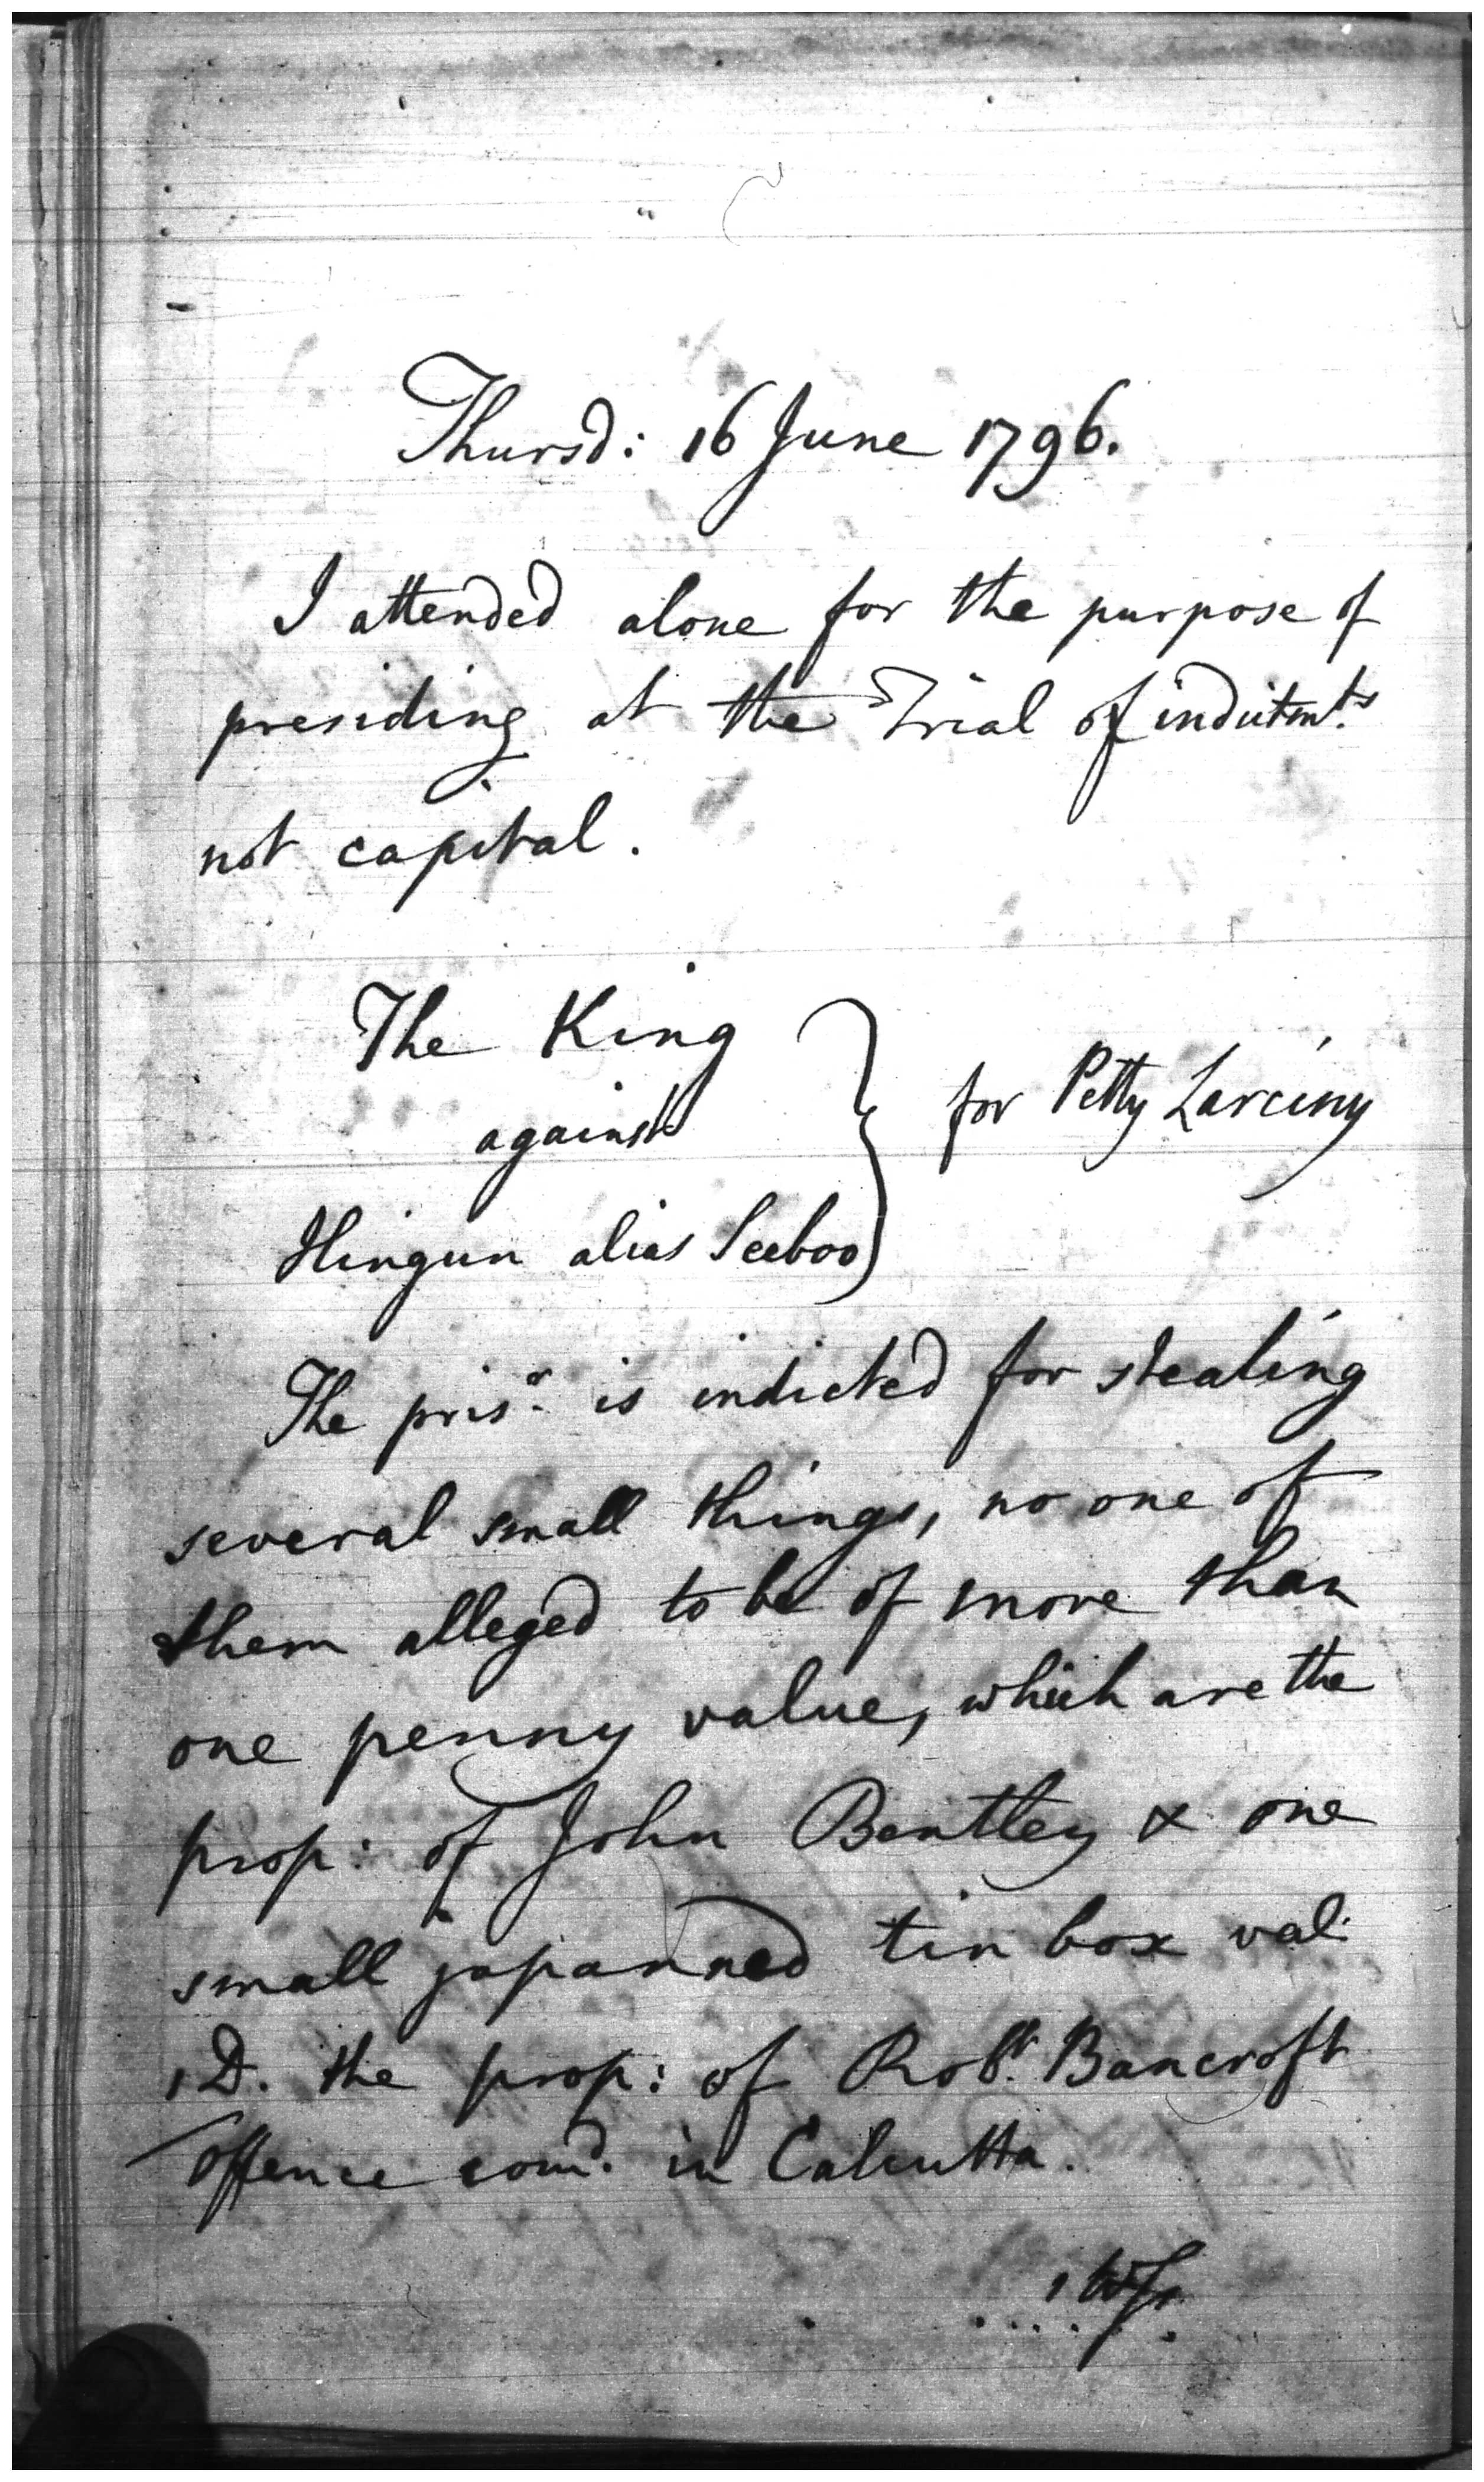 Thursd: 16 June 1796.
I attended alone for the purpose of
presiding at the Trial of indictmts
not capital.
The King
against
Hingun alias Seeboo
for Petty Larciny
The prisr. is indicted for stealing
several small things, no one of
them alleged to be of more than
one penny value, which are the
prop: of John Bentley & one
small japanned tin box val:
1D. the prop: of Robt. Bancroft
offence comd. in Calcutta.
1